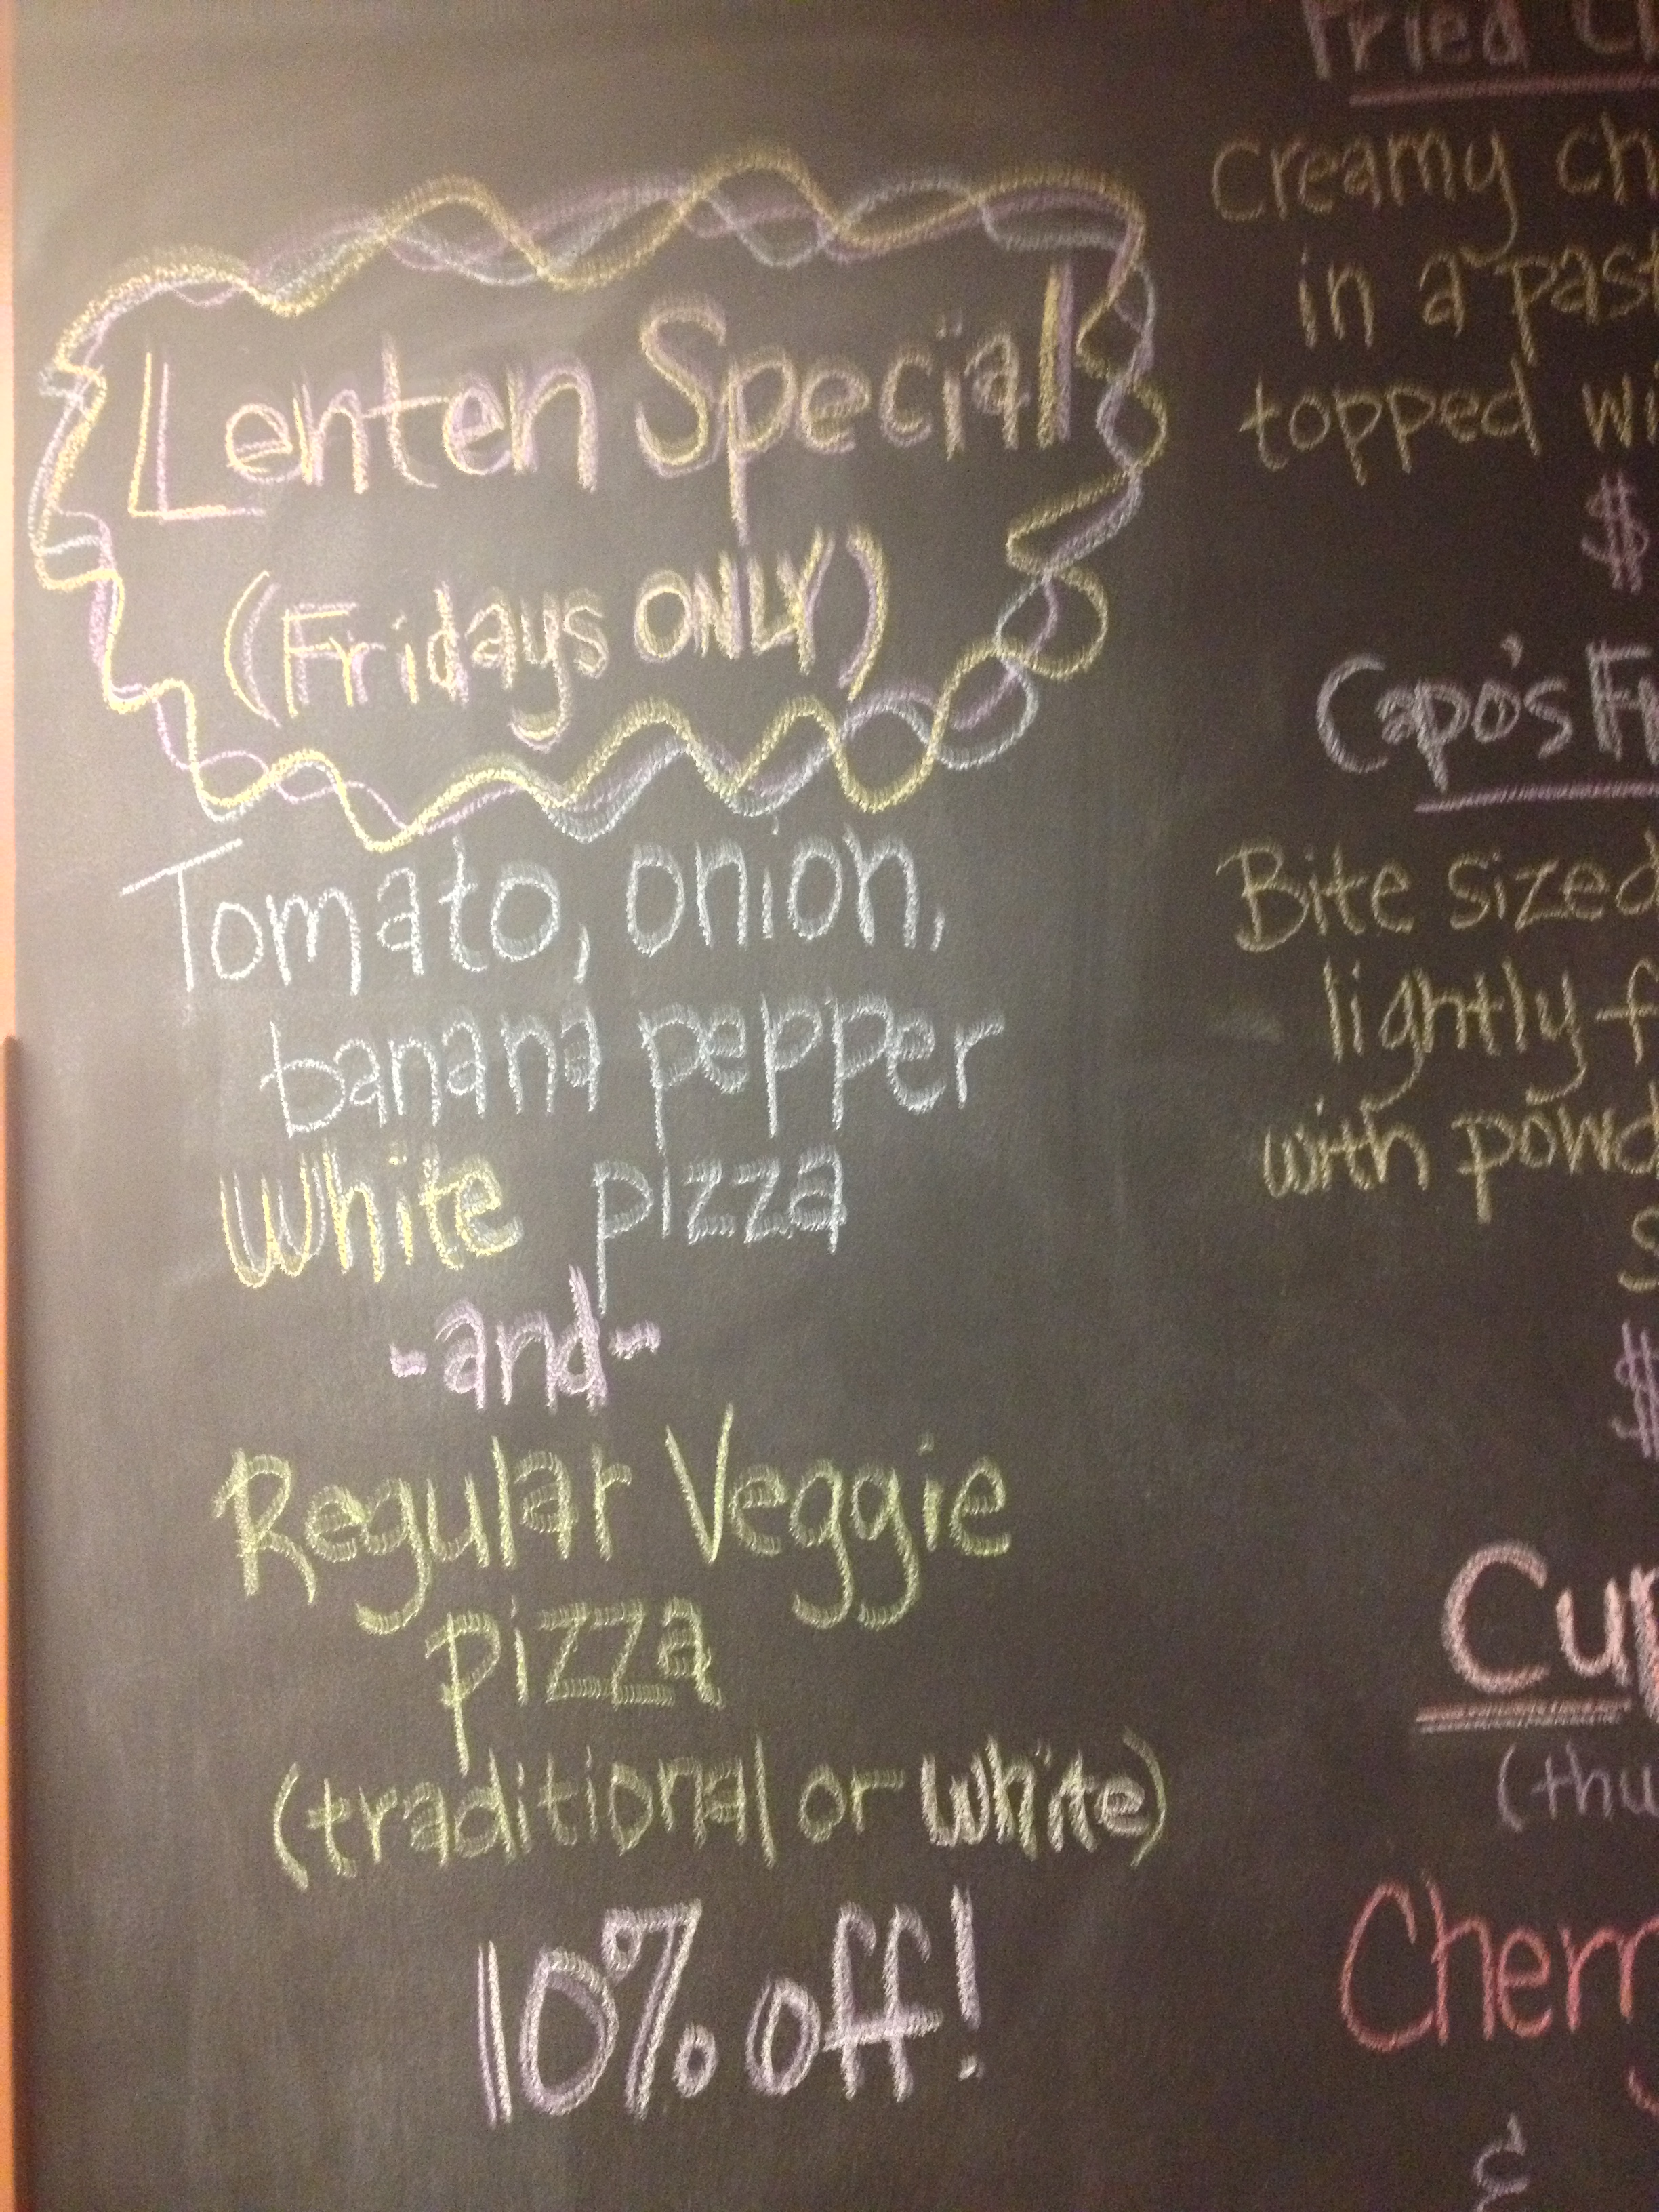 Lenten Special
(Fridays ONLY)
Tomato, onion,
banana pepper
White pizza
-and-
Regular Veggie
pizza
(traditional or white)
10% off!
Fried
Creamy
in a
topped
$
Capo's
Bite sized
lightly
with
$
Cherry